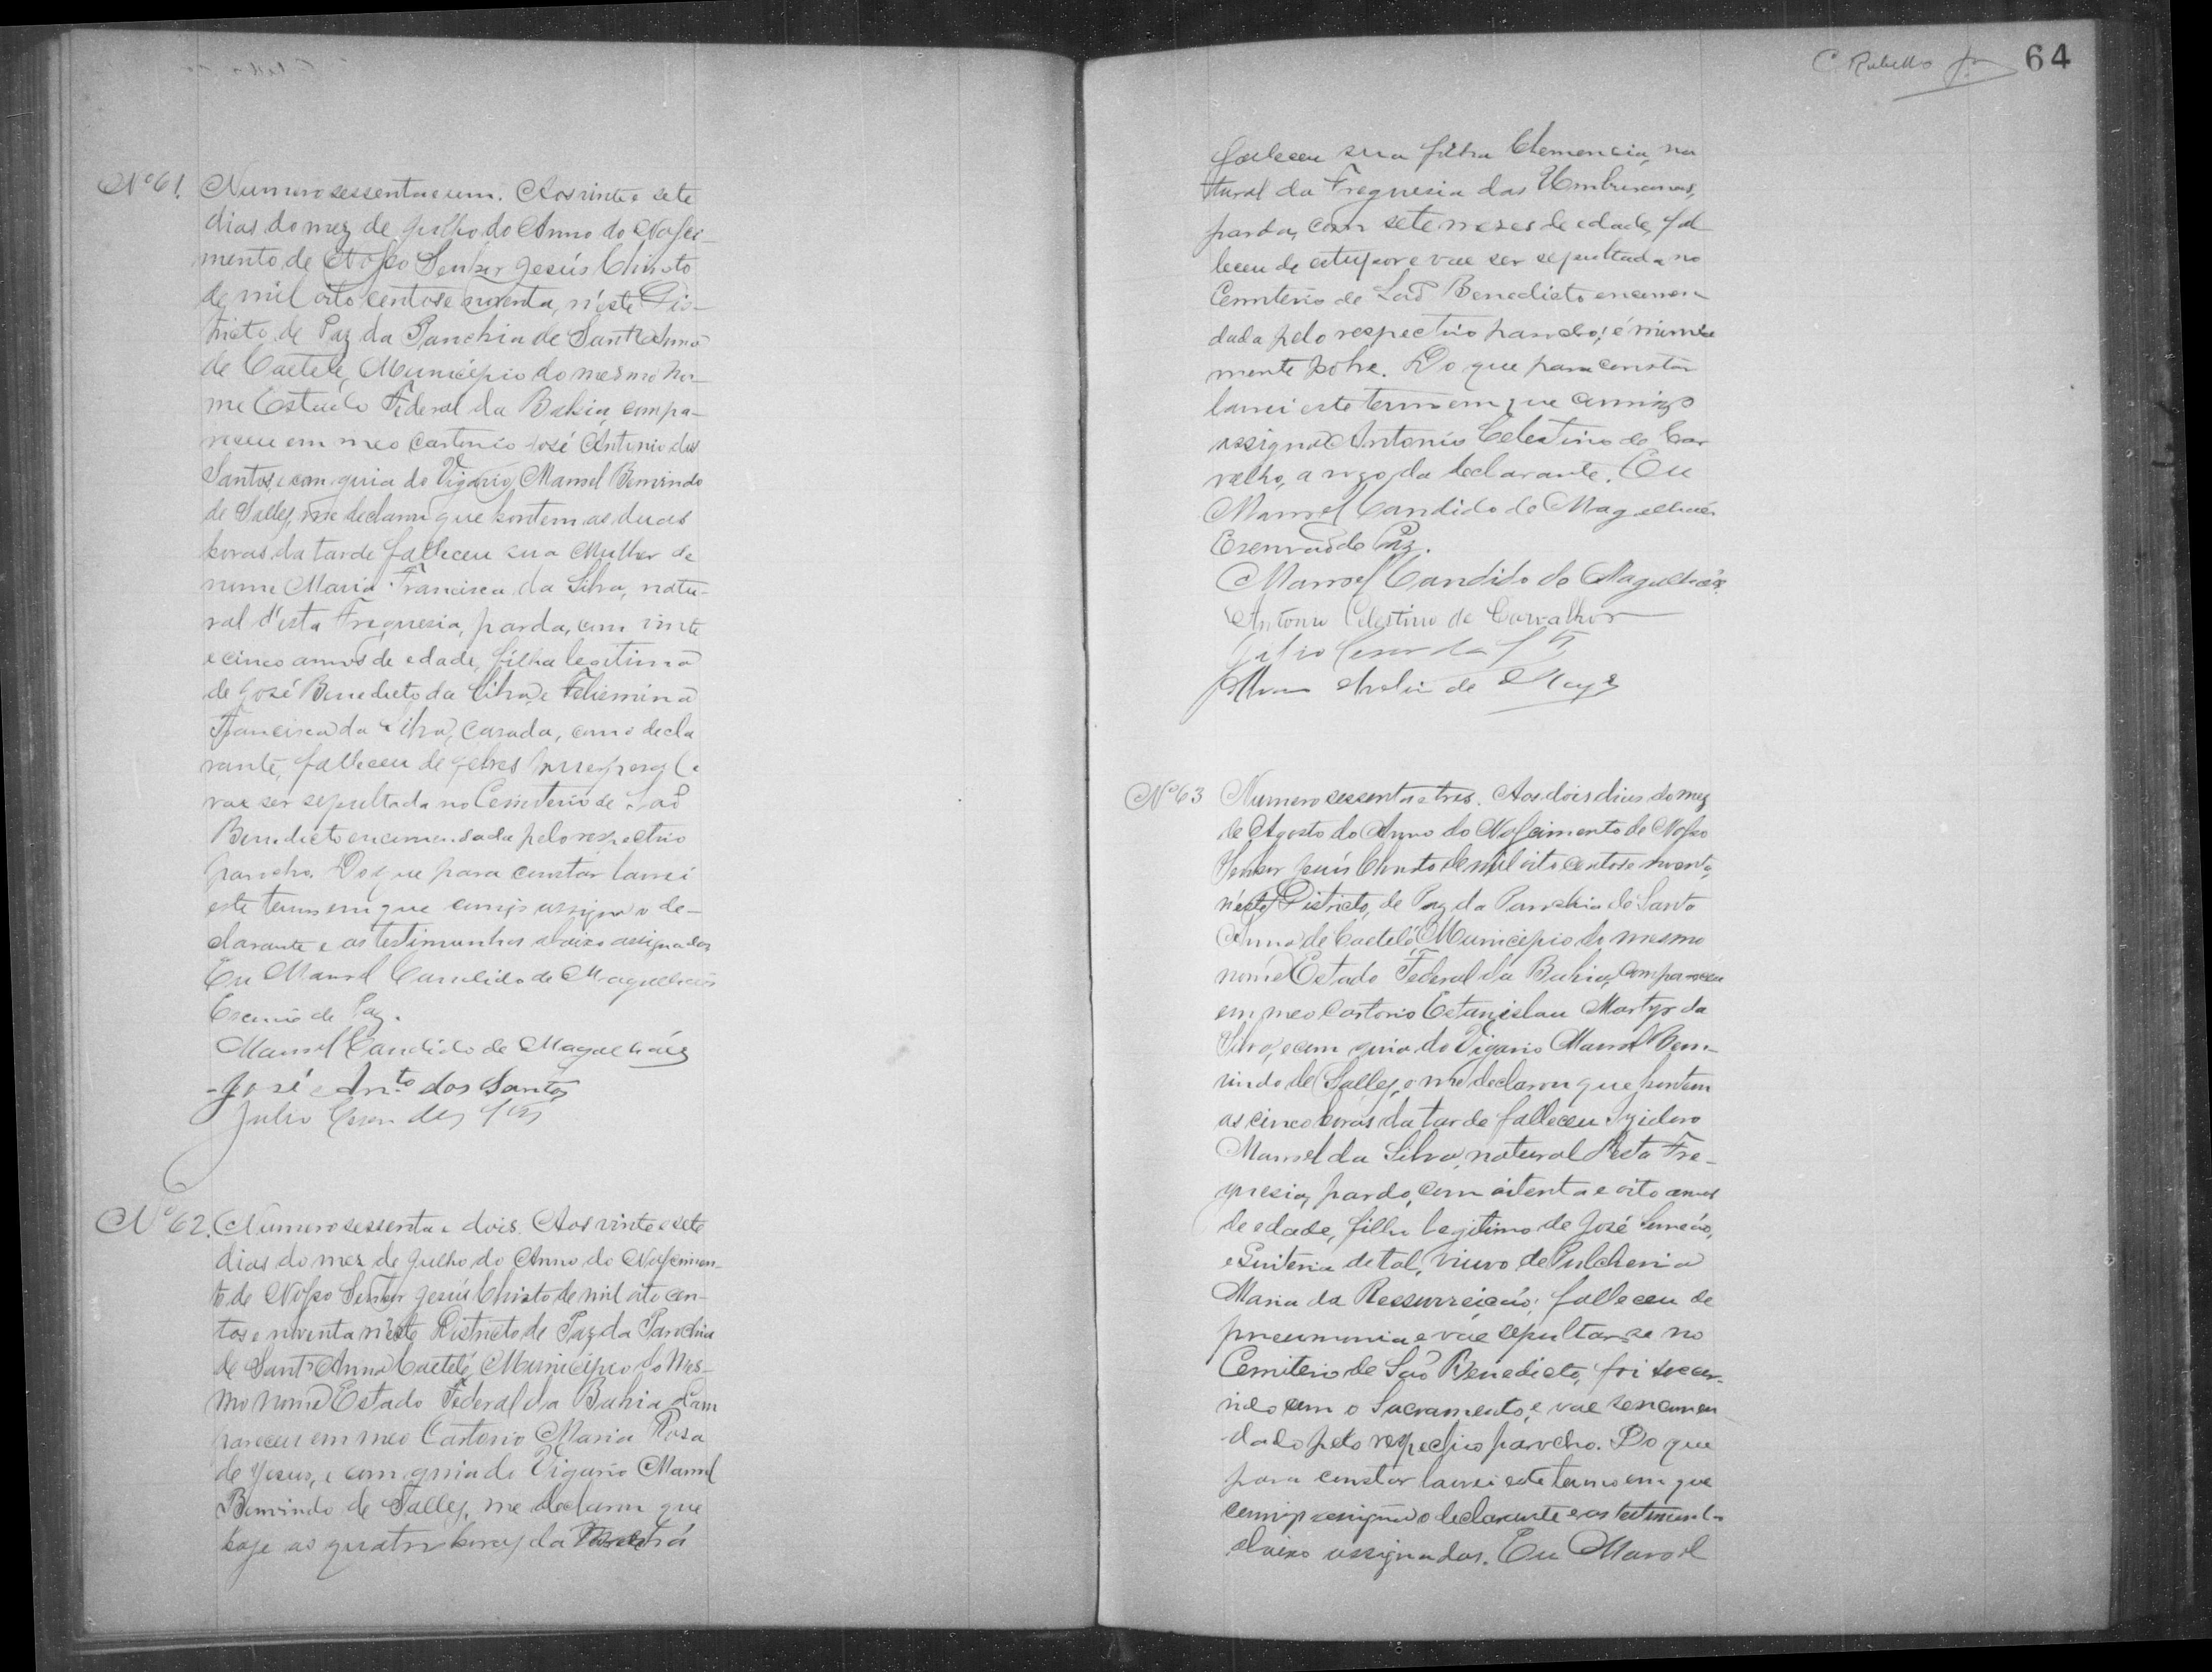 Nº 61. Numero sessenta e um. Aos vinte e sete
dias do mez de Julho do Anno do Nasci-
mento de Nosso Senhor Jesús Christo
de mil oito centos e noventa, n'este Dis-
tricto de Paz da Parochia de Sant'Anna
de Caeteté, Municipio do mesmo no-
me Estado Federal da Bahia, compa-
receu em meo Cartorio José Antonio dos
Santos, e com guia do Vigario Manoel Bemvindo
de Salles, me declarou que hontem as duas
horas da tarde falleceu sua Mulher de
nome Maria Francisca da Silva, natu-
ral d'esta Freguesia, parda, com vinte
e cinco annos de edade, filha legitima
de José Benedicto da Silva, e
Francisca da Silva, casada, com o decla
rante, falleceu de febres e
vae ser sepultada no Cemiterio de Saõ
Benedicto encomendada pelo respectivo
parocho. Do que para constar lavrei
este termo em que comigo assigna o de-
clarante e as testimunhas abaixo assignadas
Eu Manoel Candido de Magalhães
Escrivão de Paz.
Manoel Candido de Magalhães
José Anto. dos Santos
Julio Cesar
Nº 62. Numero sessenta e dois. Aos vinte e sete
dias do mez de Julho do Anno do Nascimen-
to de Nosso Senhor Jesús Christo de mil oito cen-
tos e noventa n'este Districto de Paz da Parochia
de Sant'Anna Caeteté, Municipio do mes-
mo nome Estado Federal da Bahia Com
pareceu em meo Cartorio Maria Rosa
de Jesus, e com guia do Vigario Manoel
Bemvindo de Salles, me declarou que
hoje as quatro horas da
C. Rabello Jr. 64
falleceu sua filha Clemencia, na
tural da Freguesia das Umburanas,
parda, com sete mezes de edade, fal
leceu de estupor e vae ser sepultada no
Cemiterio de Saõ Benedicto encomen
dada pelo respectivo parocho; é
mente pobre. Do que para constar
lavrei este termo em que comigo
assigna Antonio Celestino de Car
valho, a rogo da declarante. Eu
Manoel Candido de Magalhães
Escrivaõ de Paz.
Manoel Candido de Magalhães
Antonio Celestino de Carvalho
Julio Cesar da
de
Nº 63 Numero sessenta e tres. Aos dois dias do mez
de Agosto do Anno do Nascimento de Nosso
Senhor Jesús Christo de mil oito centos e noventa,
n'este Districto, de Paz da Parochia de Santa
Anna de Caeteté Municipio do mesmo
nome Estado Federal da Bahia, compareceu
em meo Cartorio Estanislau Martyr da
Silva, e com guia do Vigario Manoel Bem-
vindo de Salles, e me declarou que hontem
as cinco horas da tarde falleceu Izidoro
Manoel da Silva, natural desta Fre-
guesia, pardo, com oitenta e oito annos
de edade, filho legitimo de José
e Quiteria de tal, viuvo de Pulcheria
Maria da Ressurreição; falleceu de
pneumonia e vae sepultar-se no
Cemiterio de Saõ Benedicto, foi soccor-
rido com o Sacramento, e vae ser encomen
dado pelo respectivo parocho. Do que
para constar lavrei este termo em que
comigo assigna o declarante e as testimunhas
abaixo assignadas. Eu Manoel